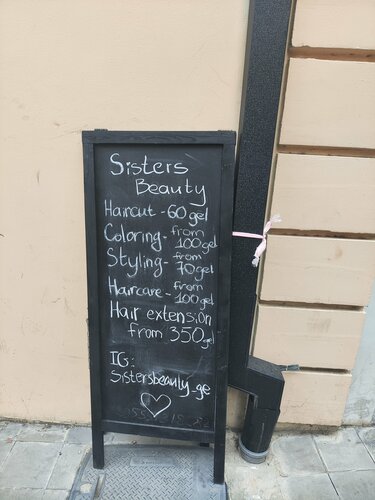 Sisters
Beauty
Haircut - 60 gel
Coloring - from
100 gel
Styling - from
70 gel
Haircare - from
100 gel
Hair extension
from 350 gel
IG:
Sistersbeauty_ge